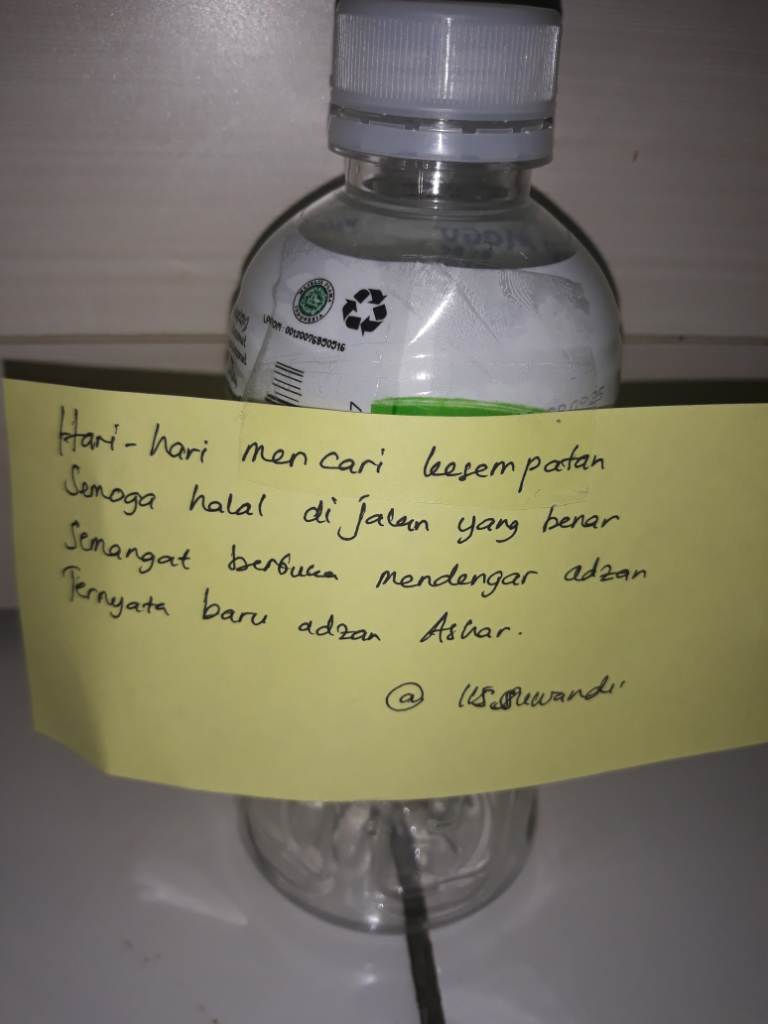 LPPOM 00120076850516
Hari-hari mencari kesempatan
Semoga halal di jalan yang benar
Semangat berbuka mendengar adzan
Ternyata baru adzan Ashar.
@ iis.suwandi